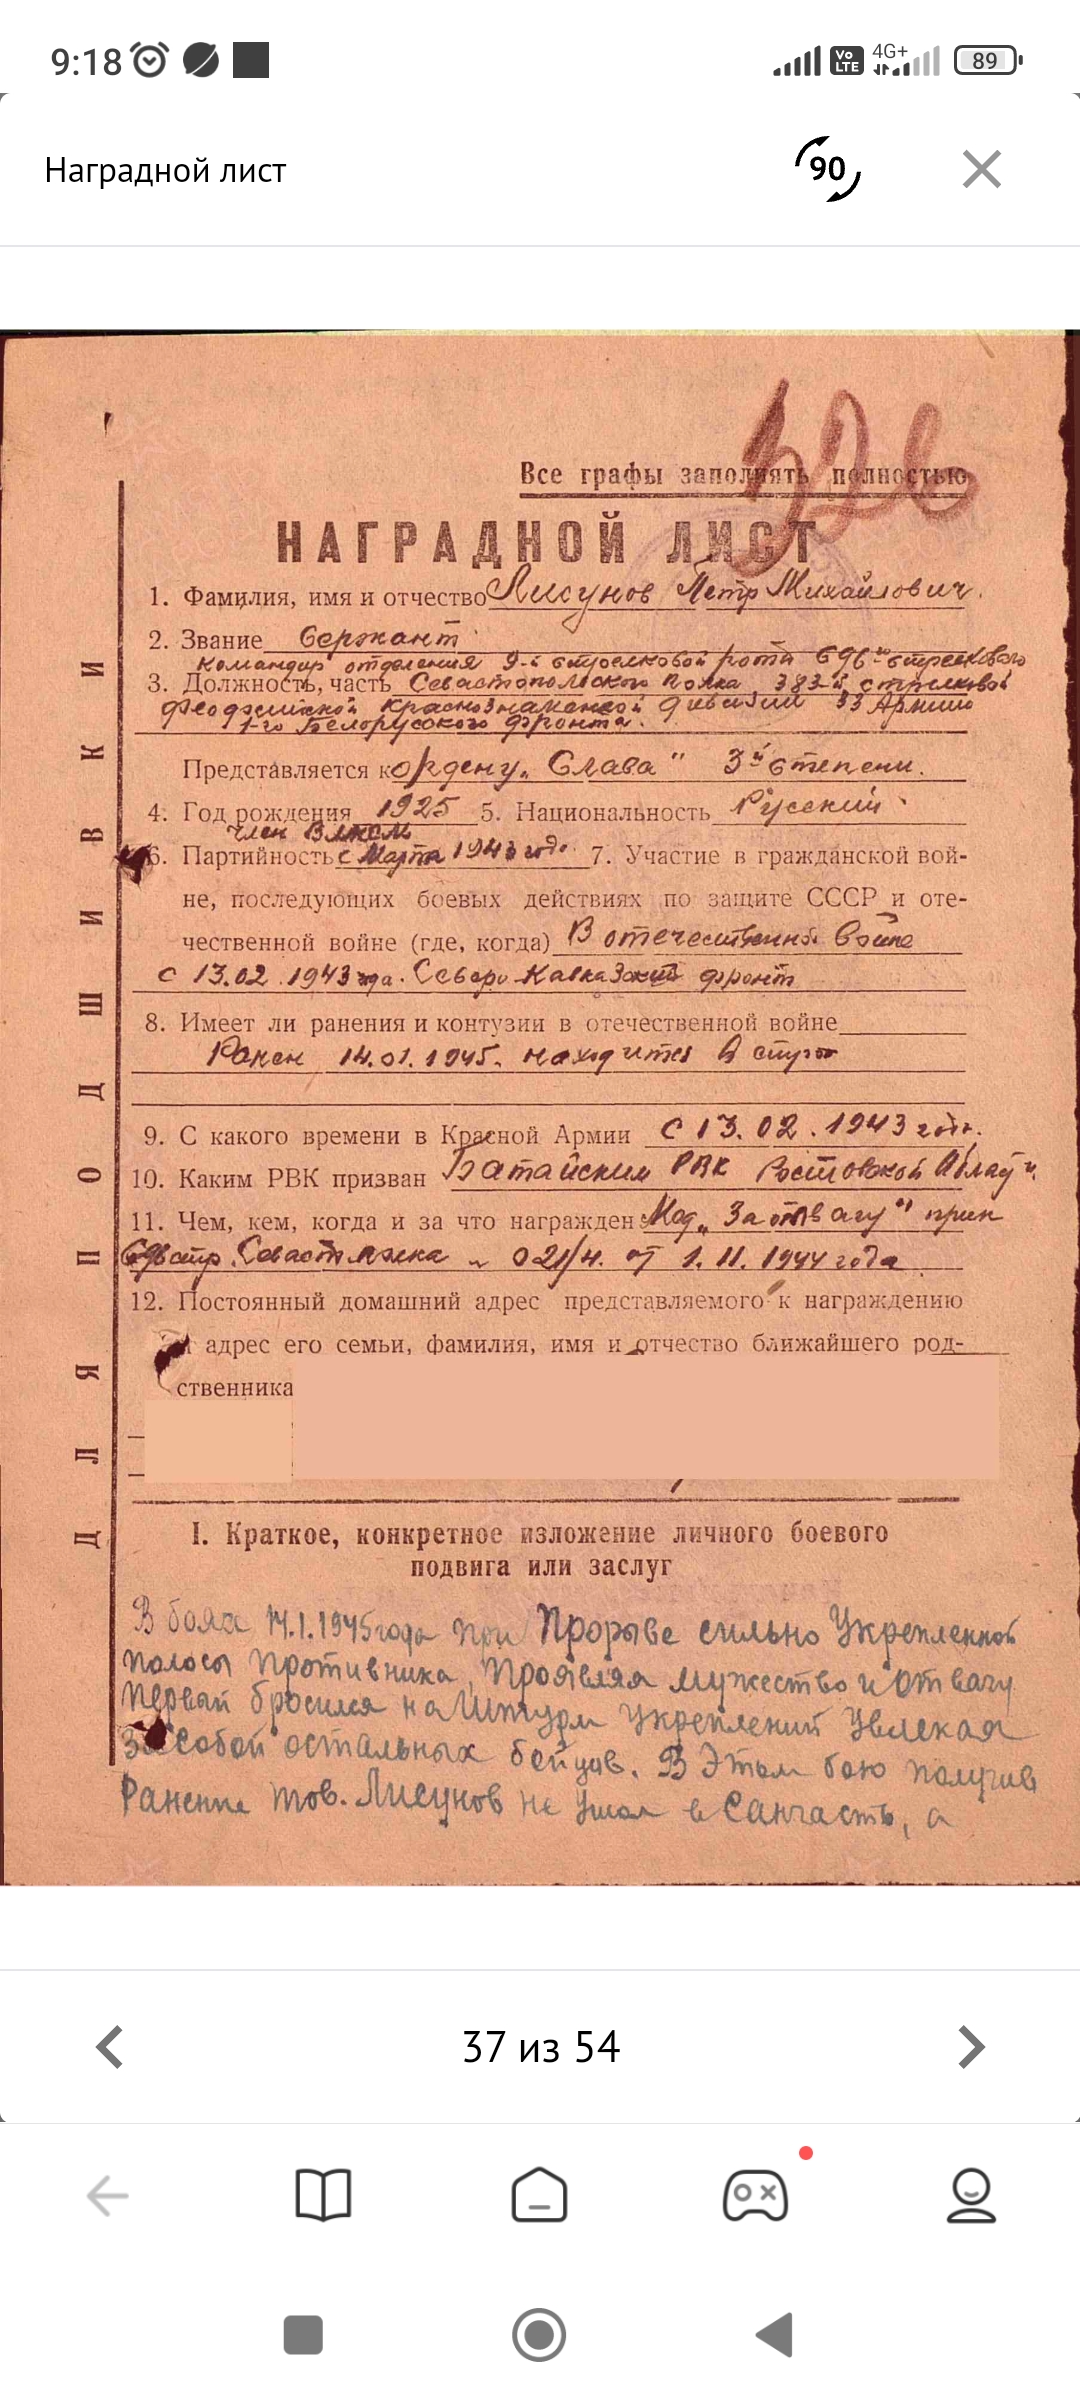 9:18
Vo LTE
4G+
89
Наградной лист
90
526
Все графы заполнять полностью
НАГРАДНОЙ ЛИСТ
1. Фамилия, имя и отчество Лисунов Петр Михайлович.
2. Звание Сержант
командир отделения 9-й стрелковой роты 696го стрелкового
3. Должность, часть Севастопольского полка 383-й стрелковой
Феодосийской Краснознаменной дивизии 33 Армии
1-го Белорусского фронта.
Представляется к ордену „Слава" 3й степени.
4. Год рождения 1925 5. Национальность Русский
член ВЛКСМ
6. Партийность с Марта 1943 год. 7. Участие в гражданской вой-
не, последующих боевых действиях по защите СССР и оте-
чественной войне (где, когда) В отечественной войне
с 13.02.1943 года. Северо Кавказский фронт
8. Имеет ли ранения и контузии в отечественной войне
Ранен 14.01.1945. находится в строю
9. С какого времени в Красной Армии С 13.02.1943 года.
10. Каким РВК призван Батайским РВК Ростовской Области
11. Чем, кем, когда и за что награжден: Мед „За отвагу" прик
696 стр. Севаст. полка № 021/н. от 1.11.1944 года
12. Постоянный домашний адрес представляемого к награждению
адрес его семьи, фамилия, имя и отчество ближайшего род-
ственника
I. Краткое, конкретное изложение личного боевого
подвига или заслуг
В боях 14.1.1945 года при Прорыве сильно Укрепленной
полосы Противника, Проявляя мужество и отвагу
первый бросился на Штурм укреплений увлекая
за собой остальных бойцов. В Этом бою получив
Ранение тов. Лисунов не ушол в Санчасть, а
ДЛЯ ПОДШИВКИ
37 из 54